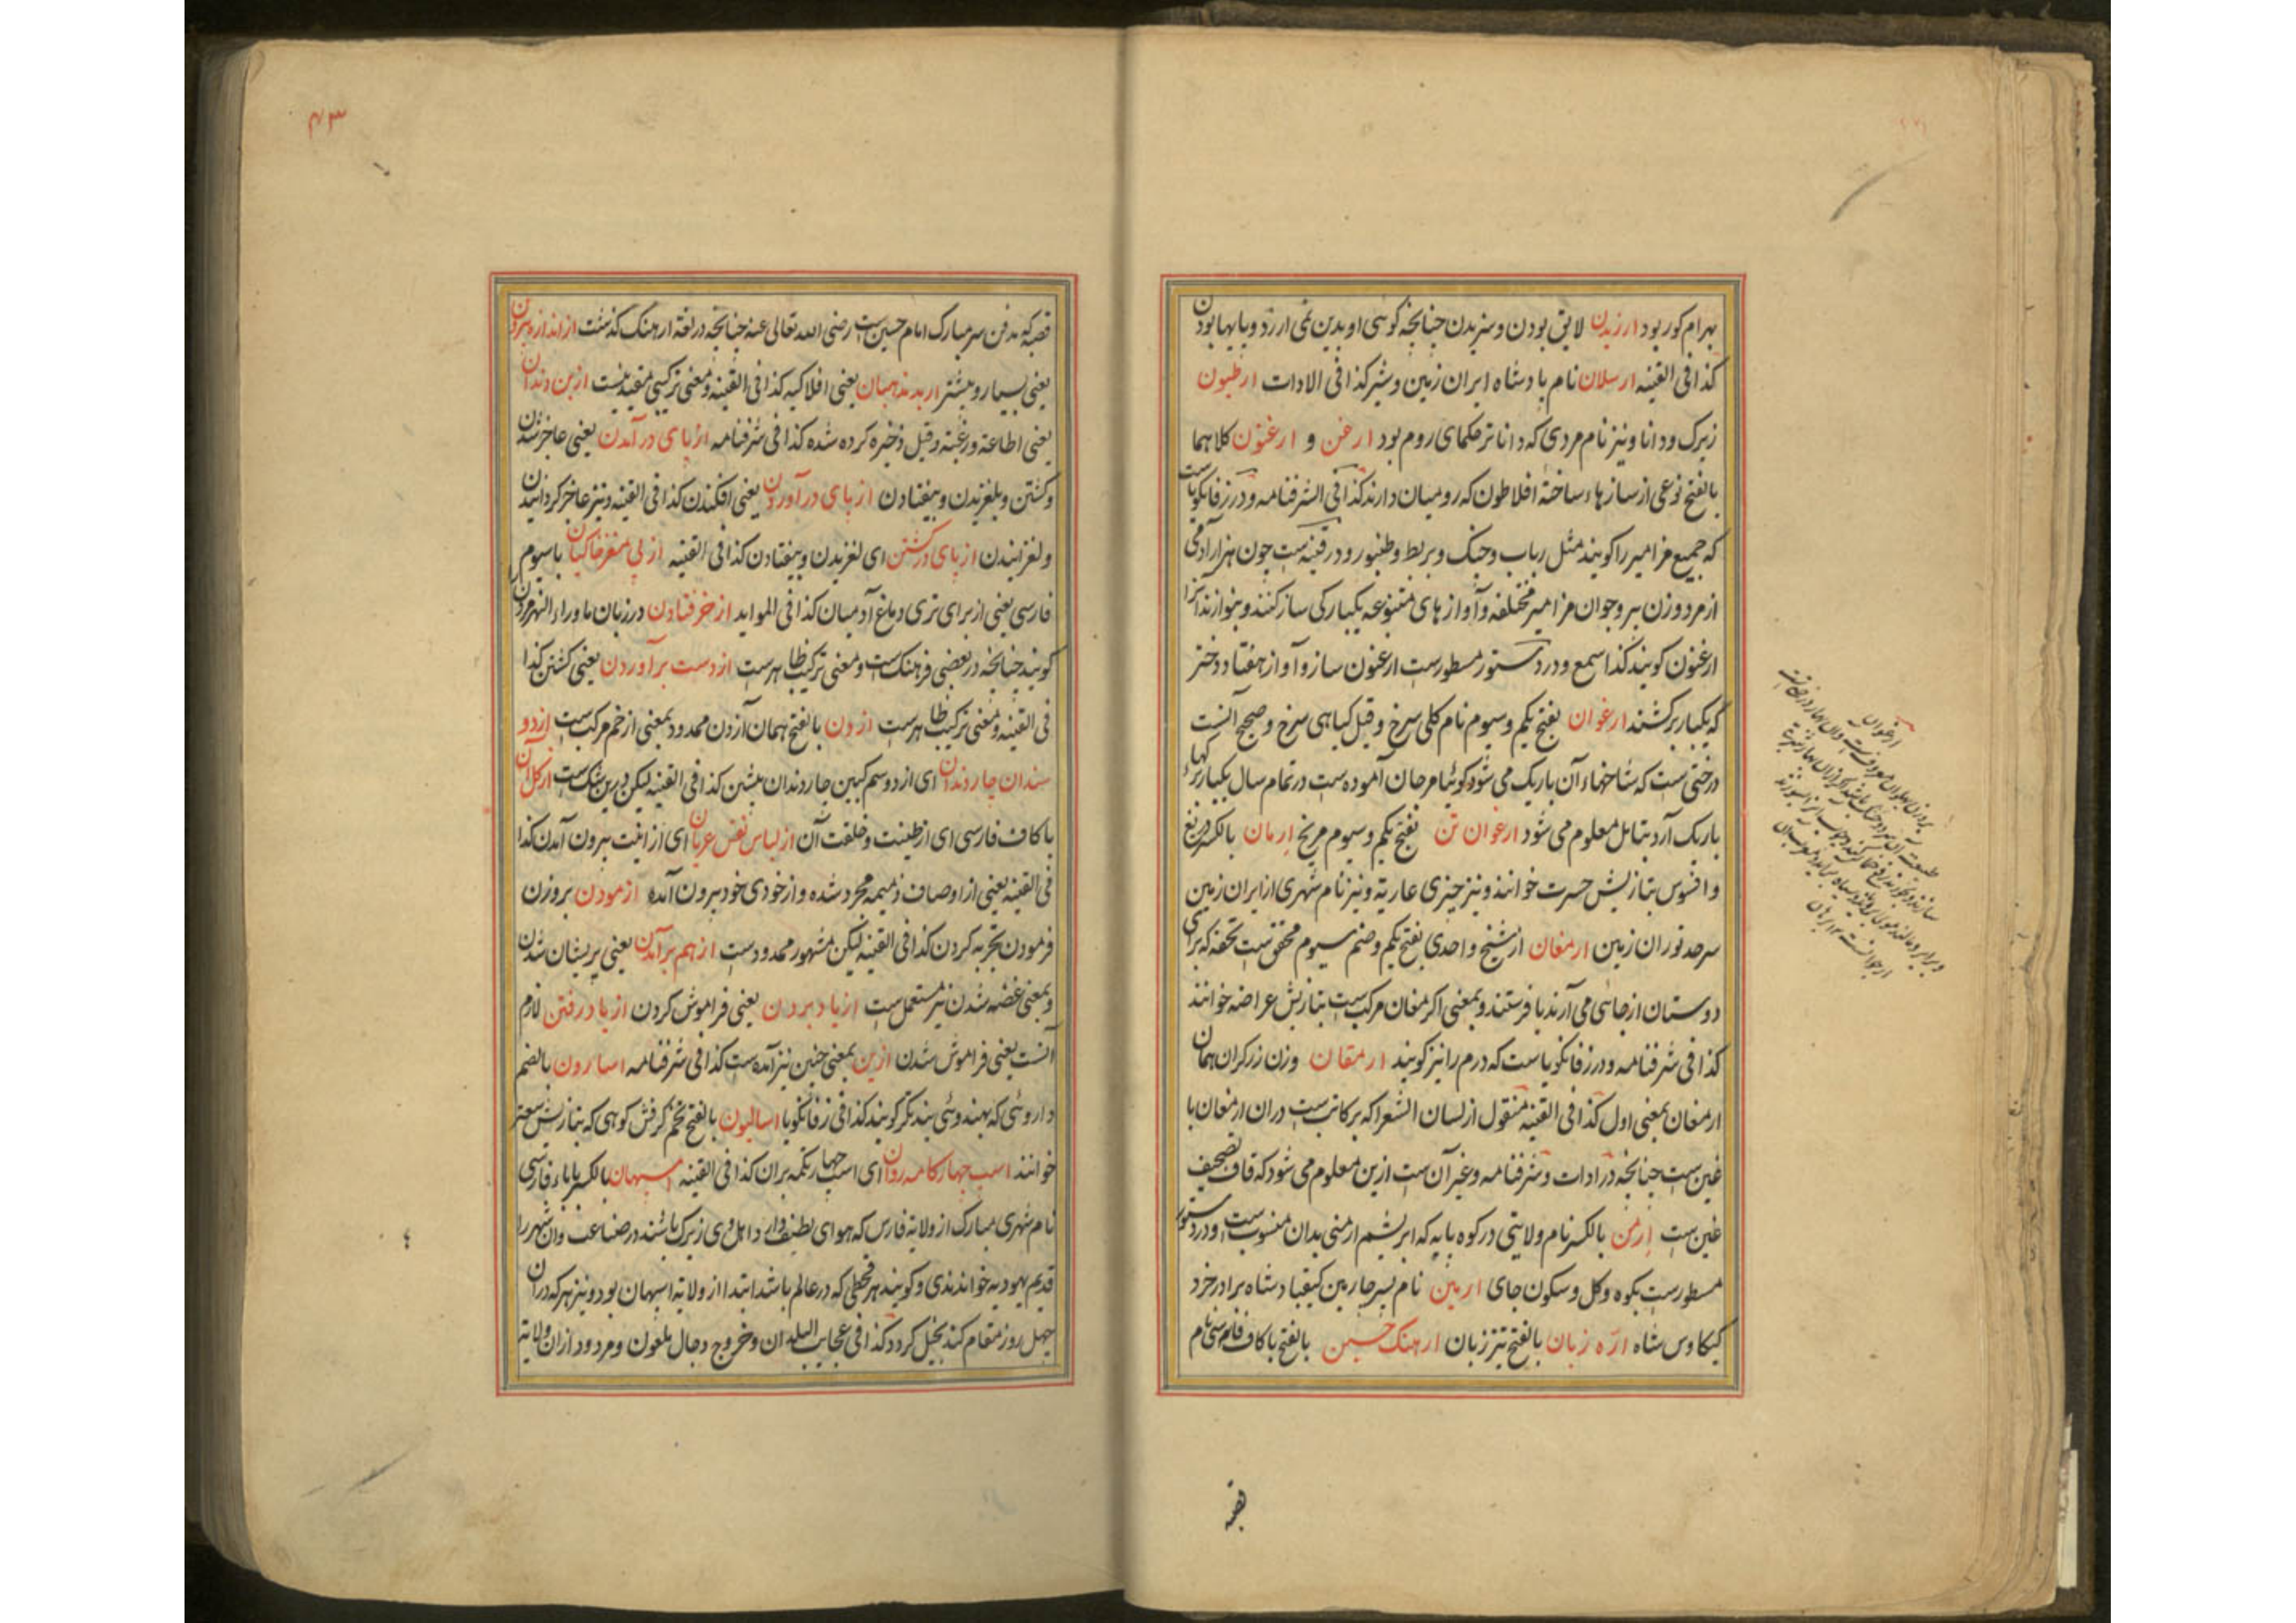 بهرام کور بود ارزیدن لایق بودن و سزیدن جنانجه کوئی او بدین نمی ارزد و بابها بودن
کذا فی القنیه ارسلان نام بادشاه ایران زمین و شیر کذا فی الادات ارطیون
زیرک و دانا و نیز نام مردی که داناتر حکمای روم بود ارغن و ارغنون کلاهما
بالفتح نوعی از سازهاء ساخته افلاطون که رومیان دارند کذا فی الشرفنامه و در زفانکویاست
که جمیع مزامیر را کویند مثل رباب و جنک و بربط و طنبور و در قنیه ست جون هزار آدمی
از مرد و زن بیر و جوان مزامیر مختلفه و آوازهای متنوعه یکبارکی ساز کنند و بنوازند آنرا
ارغنون کویند کذا سمع و در دستور مسطورست ارغنون ساز و آواز هفتاد دختر
که یکبار برکشند ارغوان بفتح یکم و سیوم نام کلی سرخ و قیل کیاهی سرخ و صحیح آنست
درختی ست که شاخهاء آن باریک می شود کوئیا مرجان آموده ست در تمام سال یکبار برکها
باریک آرد بتامل معلوم می شود ارغوان تن بفتح یکم و سیوم مریخ ارمان بالکسر دریغ
و افسوس بتازیش حسرت خوانند و نیز جیزی عاریة و نیز نام شهری از ایران زمین
سرحد توران زمین ارمغان از شیخ واحدی بفتح یکم و ضم سیوم محقق ست تحفه که برای
دوستان از جائی می آرند یا فرستند و بمعنی اکر مغان مرکب ست بتازیش عراضه خوانند
کذا فی شرفنامه و در زفانکویاست که درم را نیز کویند ارمقان وزن زرکران همان
ارمغان بمعنی اول کذا فی القنیه منقول از لسان الشعرا که برکاتب ست دران ارمغان با
غین ست جنانجه در ادات و شرفنامه و غیر آن ست ازین معلوم می شود که قاف تصحیف
غین ست ارمن بالکسر نام ولایتی در کوه بایه که ابریشم ارمنی بدان منسوب ست و در دستور
مسطورست بکوه و کل و سکون جای ارمین نام بسر جارمین کیقباد شاه برادر خرد
کیکاوس شاه ارّه زبان بالفتح تیز زبان ارهنک حسین بالفتح با کاف فارسی نام
قصبه
۴۳
قصبه که مدفن سر مبارک امام حسین ست رضی الله تعالی عنه جنانجه در لغة ارهنک کذشت از اندازه بیرون
یعنی بسیار و بیشتر یعنی افلاکیه کذا فی القنیه و معنی ترکیبی مقید نیست ازبن دندان
یعنی اطاعة و رغبة و قیل ذخیره کرده شده کذا فی شرفنامه از بای درآمدن یعنی عاجز شدن
و کشتن و بلغزیدن و بیفتادن از بای درآوردن یعنی افکندن کذا فی القنیه و نیز عاجز کردانیدن
و لغزانیدن از بای درکشتن ای لغزیدن و بیفتادن کذا فی القنیه از بی مغز خاکیان با سیوم
فارسی یعنی از برای تری دماغ آدمیان کذا فی الموائد از خر فتادن در زبان ماوراء النهر مردن
کویند جنانجه در بعضی فرهنک ست و معنی ترکیب ظاهرست از دست برآوردن یعنی کشتن کذا
فی القنیه و معنی ترکیب ظاهرست ازدن بالفتح همان آزدن ممدود بمعنی از خم مرکب ست از دو
سندان جار دندان ای از دو سم کهین جار دندان بیشین کذا فی القنیه لیکن درین شک ست از کل آن
با کاف فارسی ای از طینت و خلقت آن از لباس نفس عریان ای از انیت بیرون آمدن کذا
فی القنیه یعنی از اوصاف ذمیمه مجرد شده و از خودی خود بیرون آمده ازمودن بروزن
فرمودن تجربه کردن کذا فی القنیه لیکن مشهور ممدودست از هم برآمدن یعنی بریشان شدن
و بمعنی غضه شدن نیز مستعمل ست از یاد بردن یعنی فراموش کردن از یاد رفتن لازم
آنست یعنی فراموش شدن ازین بمعنی جنین نیز آمده ست کذا فی شرفنامه اسارون بالضم
داروئی که بهندوئی کویند کذا فی زفانکویا اسالیون بالفتح تخم کرفش کوهی که بتازیش سعتر
خوانند اسب جهار کامه روان ای اسب جهار تکمه بران کذا فی القنیه اسبهان بالکسر با باء فارسی
نام شهری مبارک از ولایة فارس که هوای لطیف دارد اهل وی زیرک باشند در صناعت و آن شهر را
قدیم یهودیه خواندندی و کویند هر قحطی که در عالم باشد ابتدا از ولایة اسبهان بود و نیز هرکه دران
جهل روز مقام کند بخیل کردد کذا فی عجایب البلدان و خروج دجال ملعون و مردود ازان ولایة